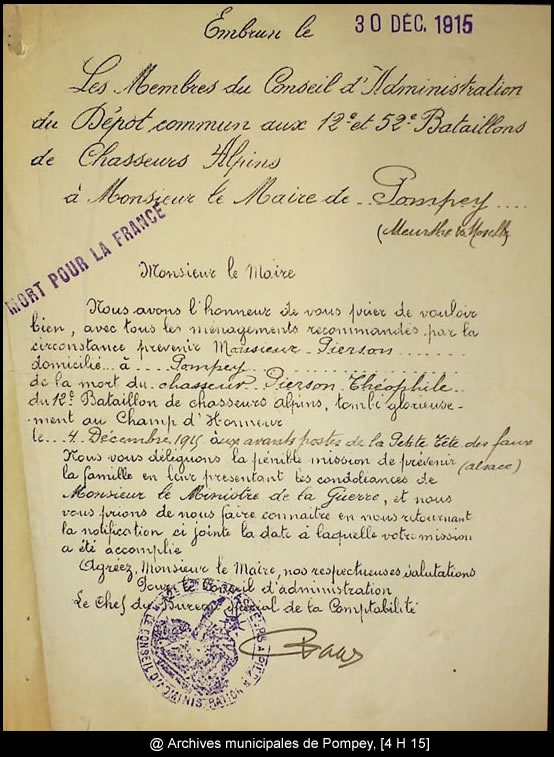 Embrun le 30 DÉC. 1915
Les Membres du Conseil d'Administration
du Dépot commun aux 12e et 52e Bataillons
de Chasseurs Alpins
à Monsieur le Maire de Pompey
(Meurthe & Moselle)
MORT POUR LA FRANCE
Monsieur le Maire
Nous avons l'honneur de vous prier de vouloir
bien, avec tous les ménagements recommandés par la
circonstance prévenir Monsieur Pierson
domicilié à Pompey
de la mort du chasseur Pierson Théophile
du 12e Bataillon de chasseurs alpins, tombé glorieuse-
ment au Champ d'Honneur
le 4 Décembre 1915 aux avants postes de la Petite Tête des faux
(alsace)
Nous vous déléguons la pénible mission de prévenir
la famille en leur présentant les condoléances de
Monsieur le Ministre de la Guerre, et nous
vous prions de nous faire connaitre en nous retournant
la notification ci jointe la date à laquelle votre mission
a été accomplie
Agréez, Monsieur le Maire, nos respectueuses salutations
Pour le Conseil d'administration
Le Chef du Bureau spécial de la Comptabilité
LE CONSEIL D'ADMINISTRATION
@ Archives municipales de Pompey, [4 H 15]